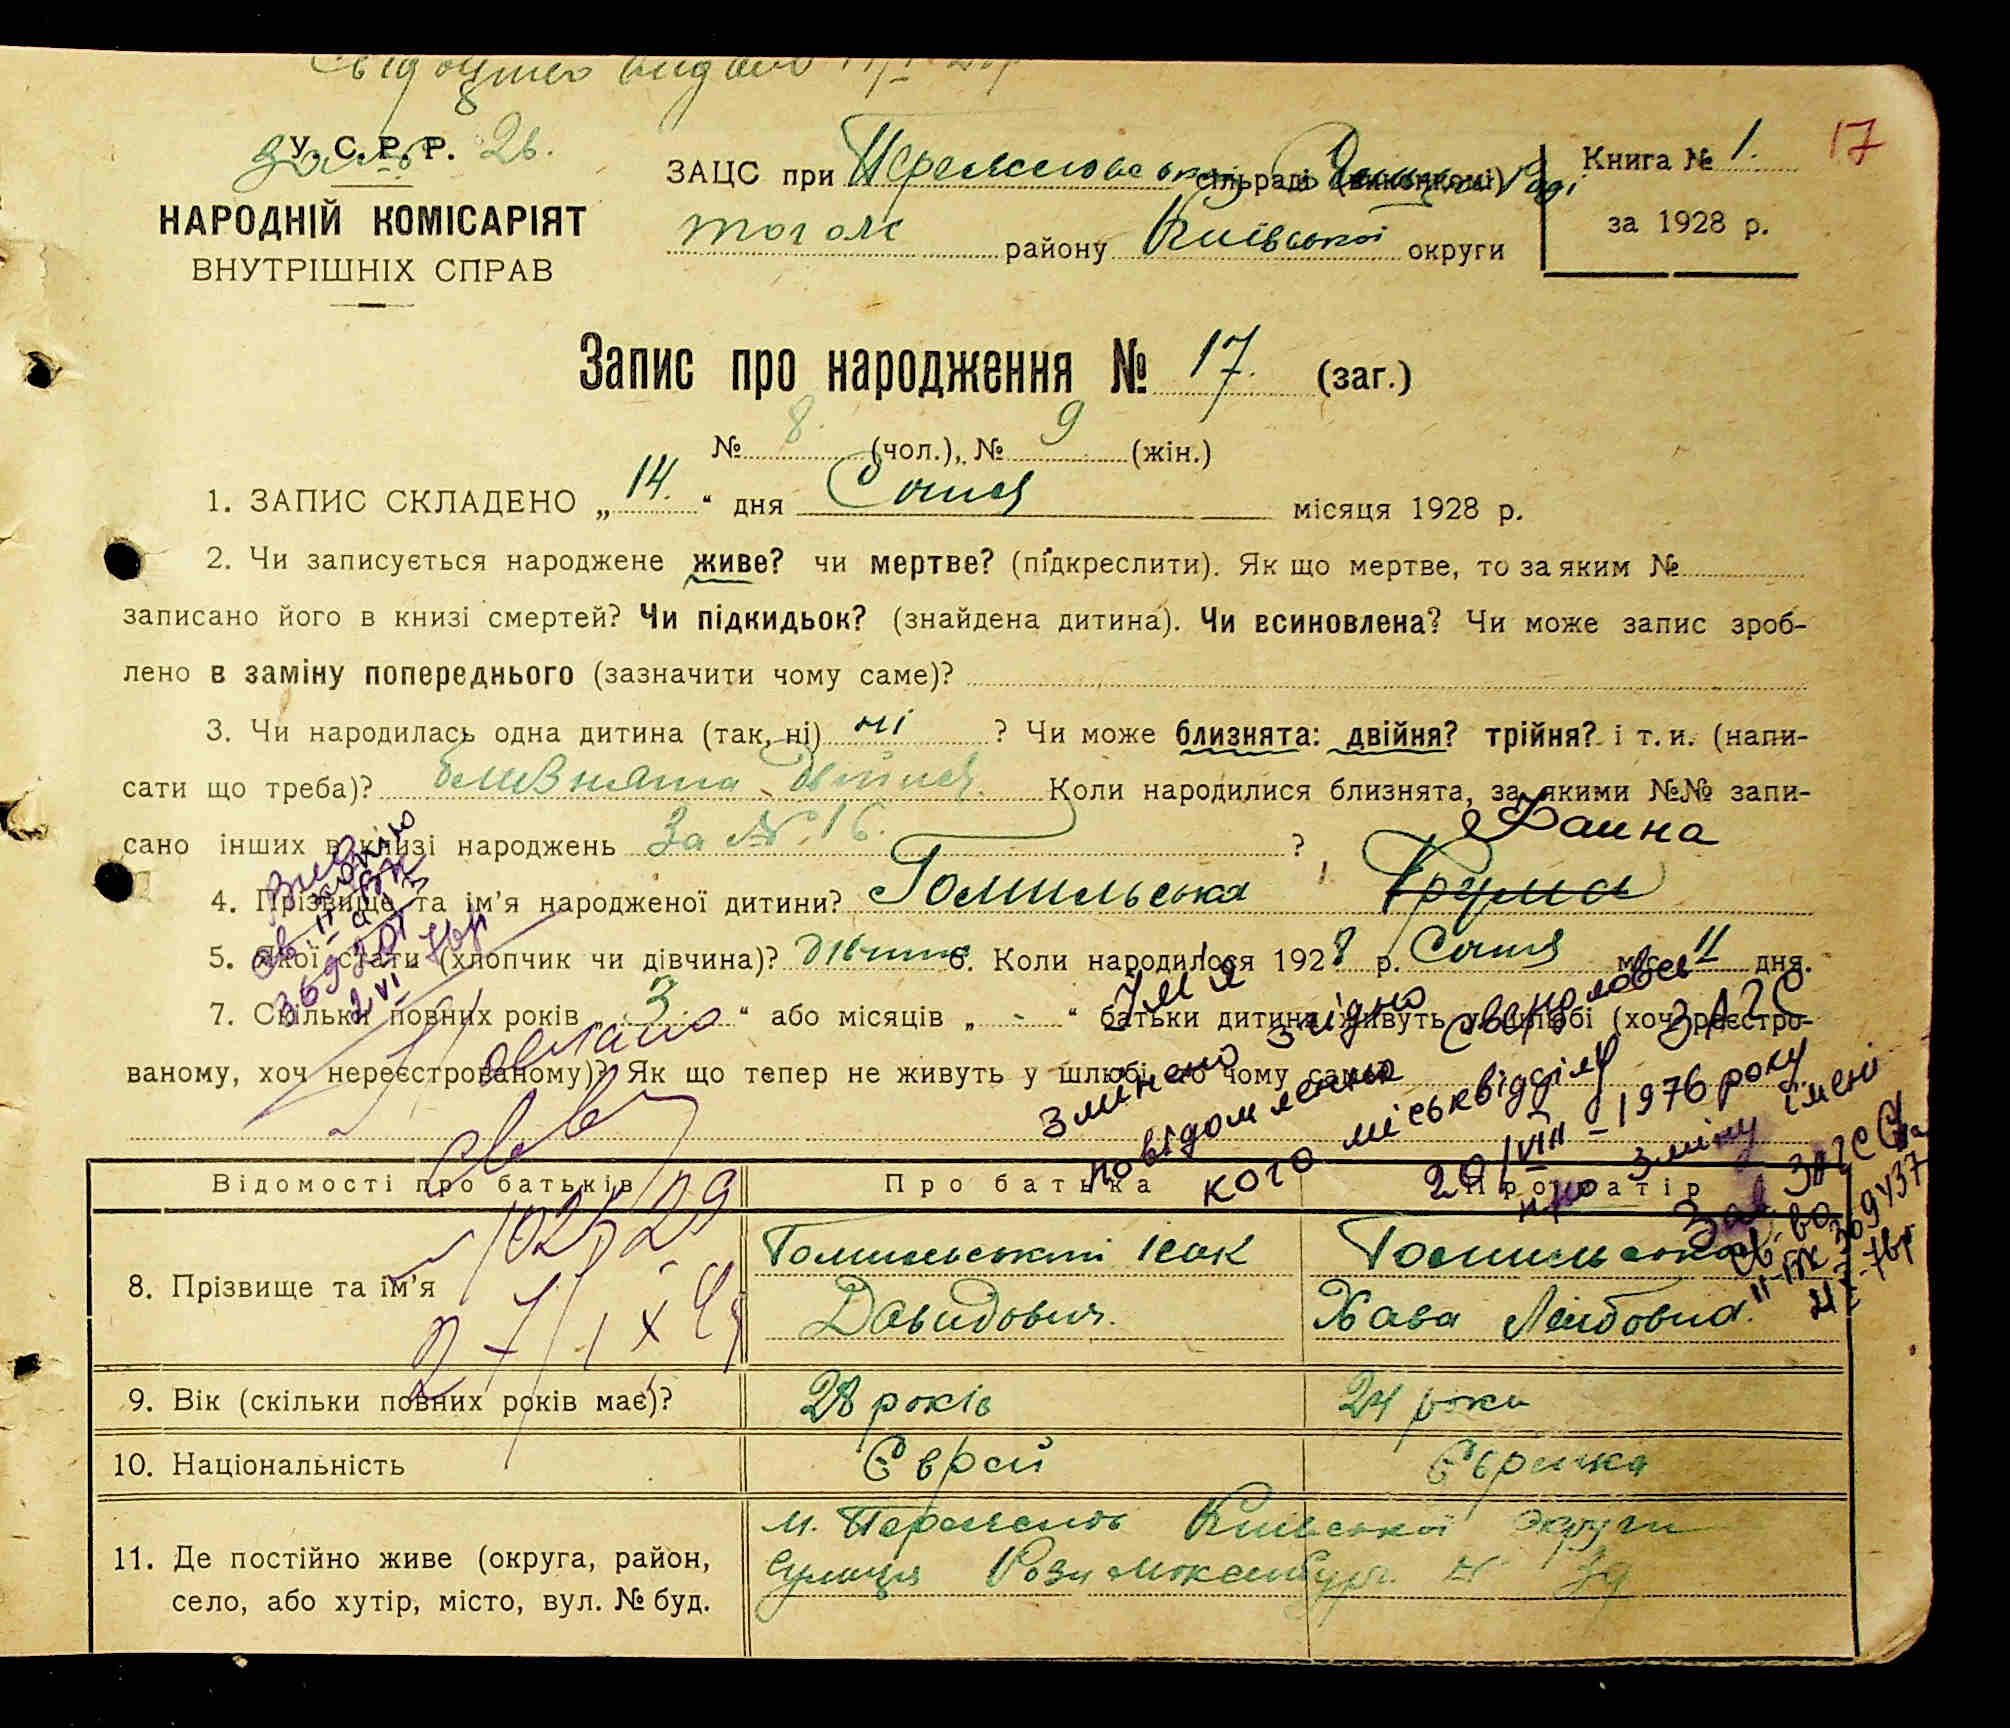 Свідоцтво видано
У. С. Р. Р. 26.
НАРОДНІЙ КОМІСАРІЯТ
ВНУТРІШНІХ СПРАВ
ЗАЦС при сільраді (виконкомі)
того ж району Київської округи
Книга № 1.
за 1928 р.
17
Запис про народження № 17. (заг.)
№ 8. (чол.), № 9 (жін.)
1. ЗАПИС СКЛАДЕНО „ 14. “ дня Січня місяця 1928 р.
2. Чи записується народжене живе? чи мертве? (підкреслити). Як що мертве, то за яким №
записано його в книзі смертей? Чи підкидьок? (знайдена дитина). Чи всиновлена? Чи може запис зроб-
лено в заміну попереднього (зазначити чому саме)?
3. Чи народилась одна дитина (так, ні) ні ? Чи може близнята: двійня? трійня? і т. и. (напи-
сати що треба)? близнята двійня. Коли народилися близнята, за якими №№ запи-
сано інших в книзі народжень За № 16. ?
Фаина
4. Прізвище та ім'я народженої дитини? Гомильська Фрума
5. Якої стати (хлопчик чи дівчина)? дівчина 6. Коли народилося 1928 р. Січня міс. 11 дня.
7. Скільки повних років „ 3 “ або місяців „ - “ батьки дитини живуть у шлюбі (хоч реєстро-
ваному, хоч нереєстрованому)? Як що тепер не живуть у шлюбі, то чому саме
Ім'я
змінено згідно
повідомлення Свердловсь
кого міськвідділу ЗАГС
20/VIII - 1976 року
про зміну імені
Зав ЗАГС
Св-во
II-БК 369437
Відомості про батьків Про батька Про матір
8. Прізвище та ім'я Гомильський Ісак Давидович. Гомильська Хава Лейбовна.
102 / 29
27/IX 4
9. Вік (скільки повних років має)? 28 років 24 роки
10. Національність Єврей Єврейка
11. Де постійно живе (округа, район,
село, або хутір, місто, вул. № буд.
м. Київської Округи
вулиця № 39